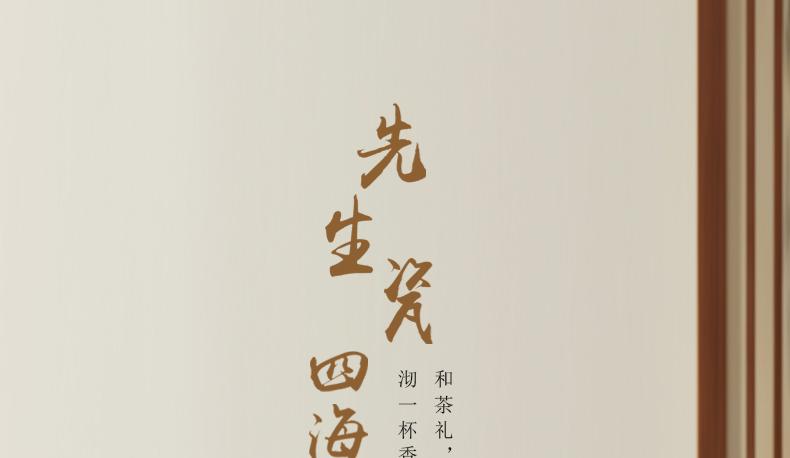 先生瓷
四海
和茶礼，
沏一杯香